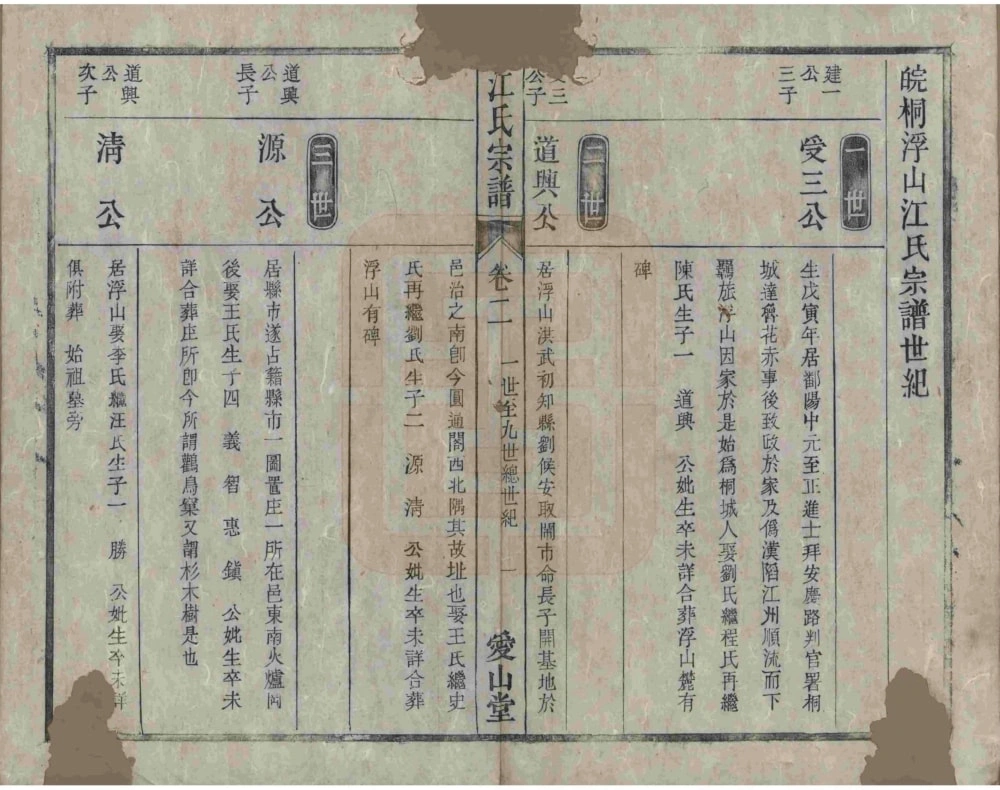 皖桐浮山江氏宗譜世紀
一世
建一
公
三子
受三公
生戊寅年居鄱陽中元至正進士拜安慶路判官署桐
城達魯花赤事後致政於家及偽漢陷江州順流而下
羈旅浮山因家於是始為桐城人娶劉氏繼程氏再繼
陳氏生子一 道興 公妣生卒未詳合葬浮山麓有
碑
二世
三
公
子
道興公
居浮山洪武初知縣劉侯安取閘市命長子開基地於
江氏宗譜
卷二 一世至九世總世紀 一
愛山堂
邑治之南卽今圓通閣西北隅其故址也娶王氏繼史
氏再繼劉氏生子二 源 清 公妣生卒未詳合葬
浮山有碑
三世
道興
公
長子
源公
居縣市遂占籍縣市一圖置庄一所在邑東南火爐岡
後娶王氏生子四 義 智 惠 鎮 公妣生卒未
詳合葬庄所卽今所謂鸛鳥窠又謂杉木樹是也
道興
公
次子
清公
居浮山娶李氏繼汪氏生子一 勝 公妣生卒未詳
俱附葬 始祖塋旁